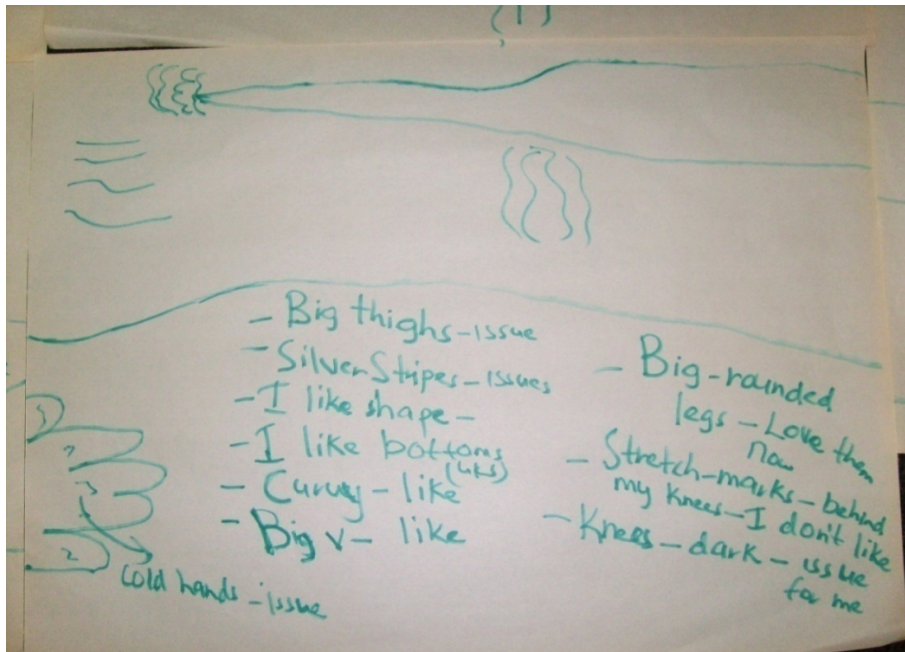 - Big thighs - issue
- Silver Stripes - issues
- I like shape -
- I like bottoms
- Curvy - like
- Big v - like
cold hands - issue
- Big - rounded
legs - Love them
now
- Stretch - marks - behind
my knees - I don't like
- Knees - dark - issue
for me